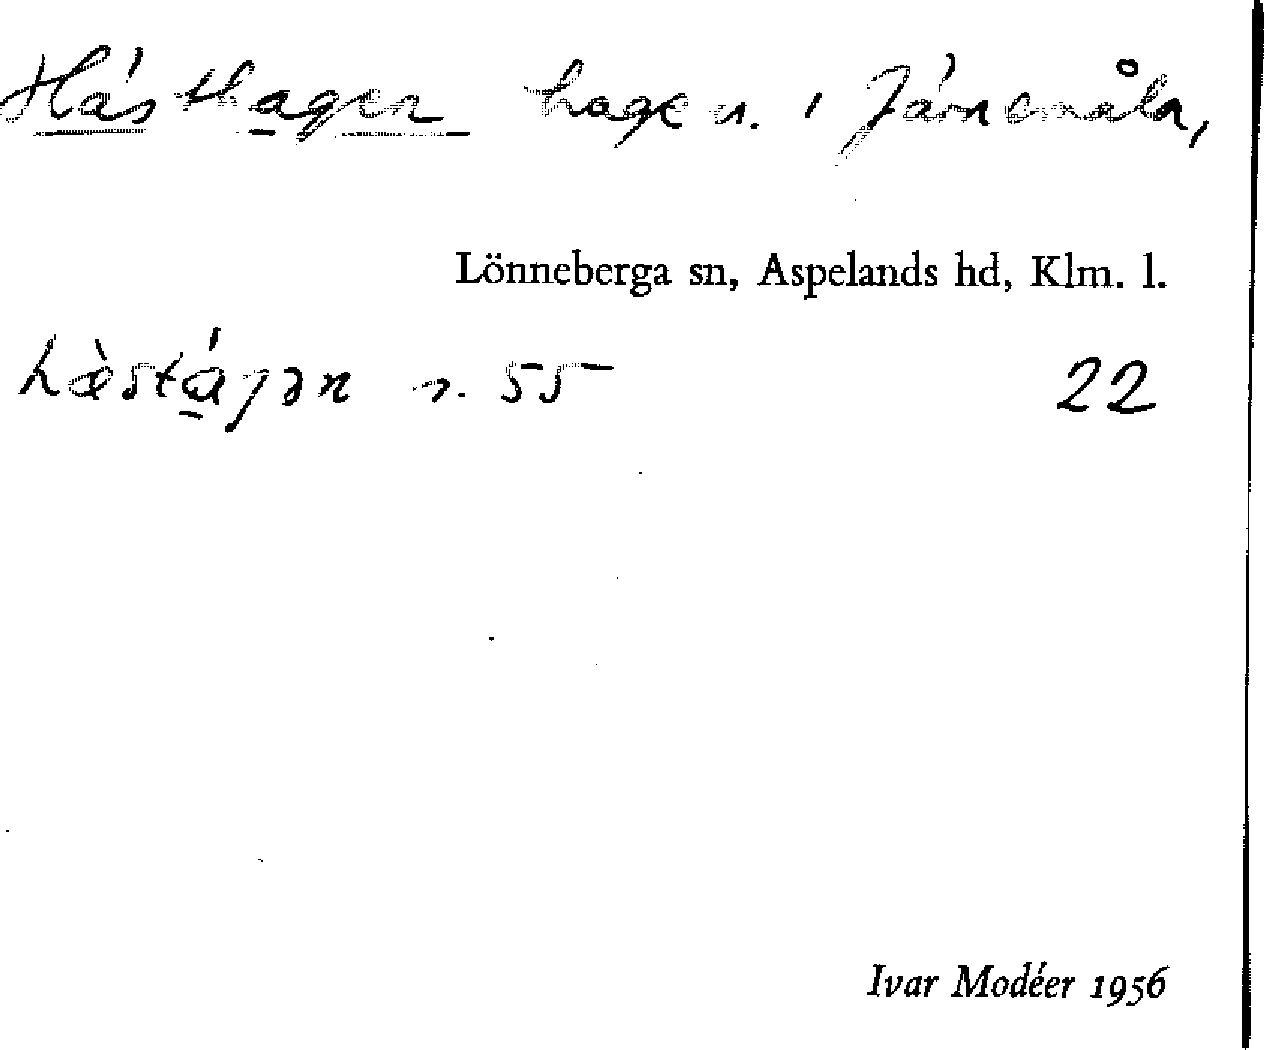 Hästhagen hage n. i Järnemåla,
Lönneberga sn, Aspelands hd, Klm. l.
hæ̀stágən n. 55
22
Ivar Modéer 1956